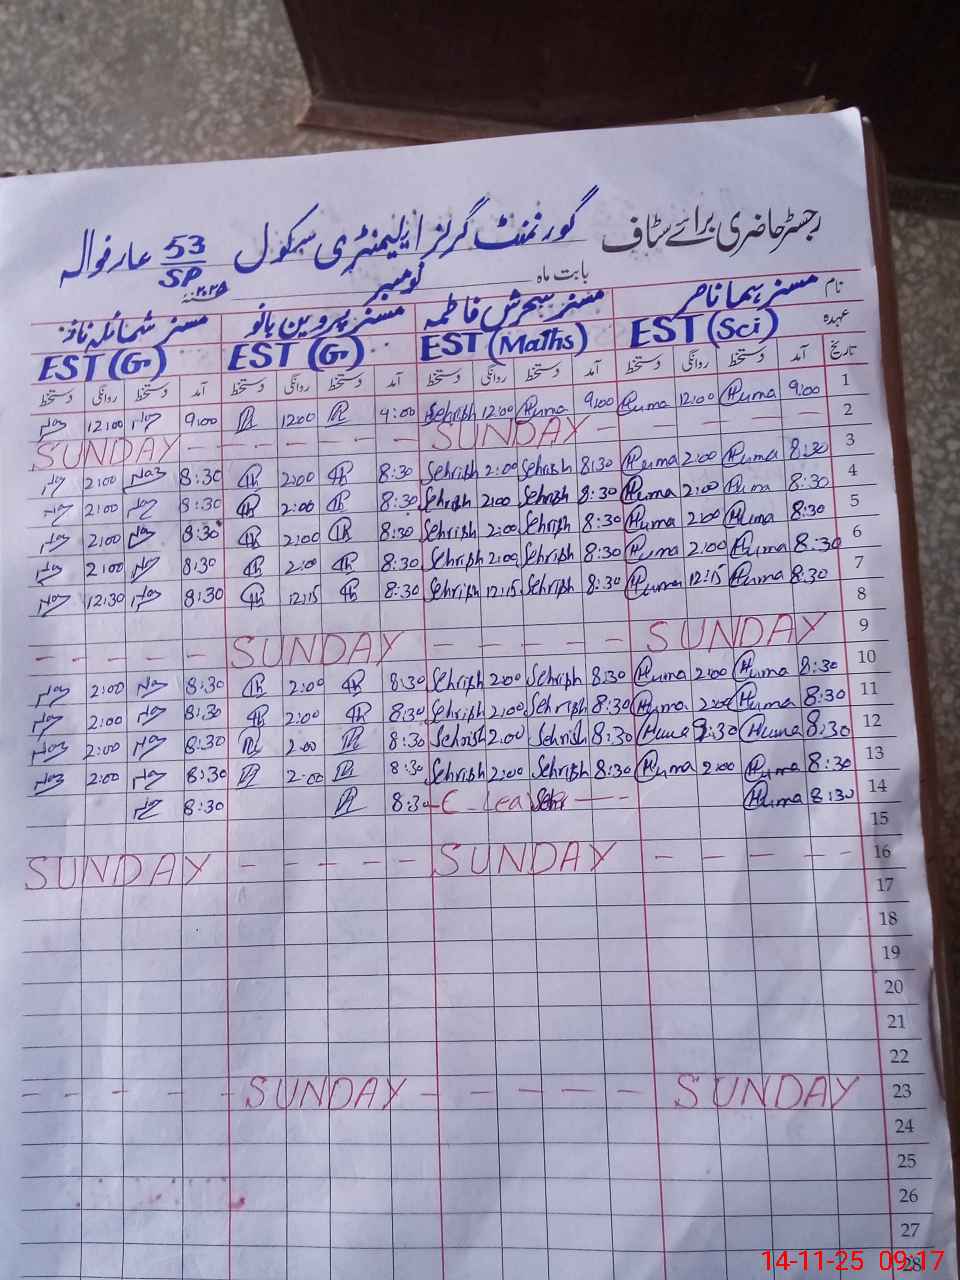 رجسٹر حاضری برائے سٹاف گورنمنٹ گرلز ایلیمنٹری سکول 53/SP عارفوالہ
بابت ماہ نومبر ۲۰۲۵ء
نام مسز ہما ناصر مسز سحرش فاطمہ مسز پروین بانو مسز شمائلہ ناز
عہدہ EST (Sci) EST (Maths) EST (G) EST (G)
تاریخ آمد دستخط روانگی دستخط آمد دستخط روانگی دستخط آمد دستخط روانگی دستخط آمد دستخط روانگی دستخط
1 9:00 Huma 12:00 Huma 9:00 12:00 Sehrish 9:00 12:00 9:00 Naz 12:00 Naz
2 SUNDAY SUNDAY
3 8:30 Huma 2:00 Huma 8:30 Sehrish 2:00 Sehrish 8:30 2:00 8:30 Naz 2:00 Naz
4 8:30 Huma 2:00 Huma 8:30 Sehrish 2:00 Sehrish 8:30 2:00 8:30 Naz 2:00 Naz
5 8:30 Huma 2:00 Huma 8:30 Sehrish 2:00 Sehrish 8:30 2:00 8:30 Naz 2:00 Naz
6 8:30 Huma 2:00 Huma 8:30 Sehrish 2:00 Sehrish 8:30 2:00 8:30 Naz 2:00 Naz
7 8:30 Huma 12:15 Huma 8:30 Sehrish 12:15 Sehrish 8:30 12:15 8:30 Naz 12:30 Naz
8
9 SUNDAY SUNDAY
10 8:30 Huma 2:00 Huma 8:30 Sehrish 2:00 Sehrish 8:30 2:00 8:30 Naz 2:00 Naz
11 8:30 Huma 2:00 Huma 8:30 Sehrish 2:00 Sehrish 8:30 2:00 8:30 Naz 2:00 Naz
12 8:30 Huma 2:30 Huma 8:30 Sehrish 2:00 Sehrish 8:30 2:00 8:30 Naz 2:00 Naz
13 8:30 Huma 2:00 Huma 8:30 Sehrish 2:00 Sehrish 8:30 2:00 8:30 Naz 2:00 Naz
14 8:30 Huma C- Lea 8:30 8:30 Naz
15
16 SUNDAY SUNDAY
17
18
19
20
21
22
23 SUNDAY SUNDAY
24
25
26
27
28
14-11-25 09:17